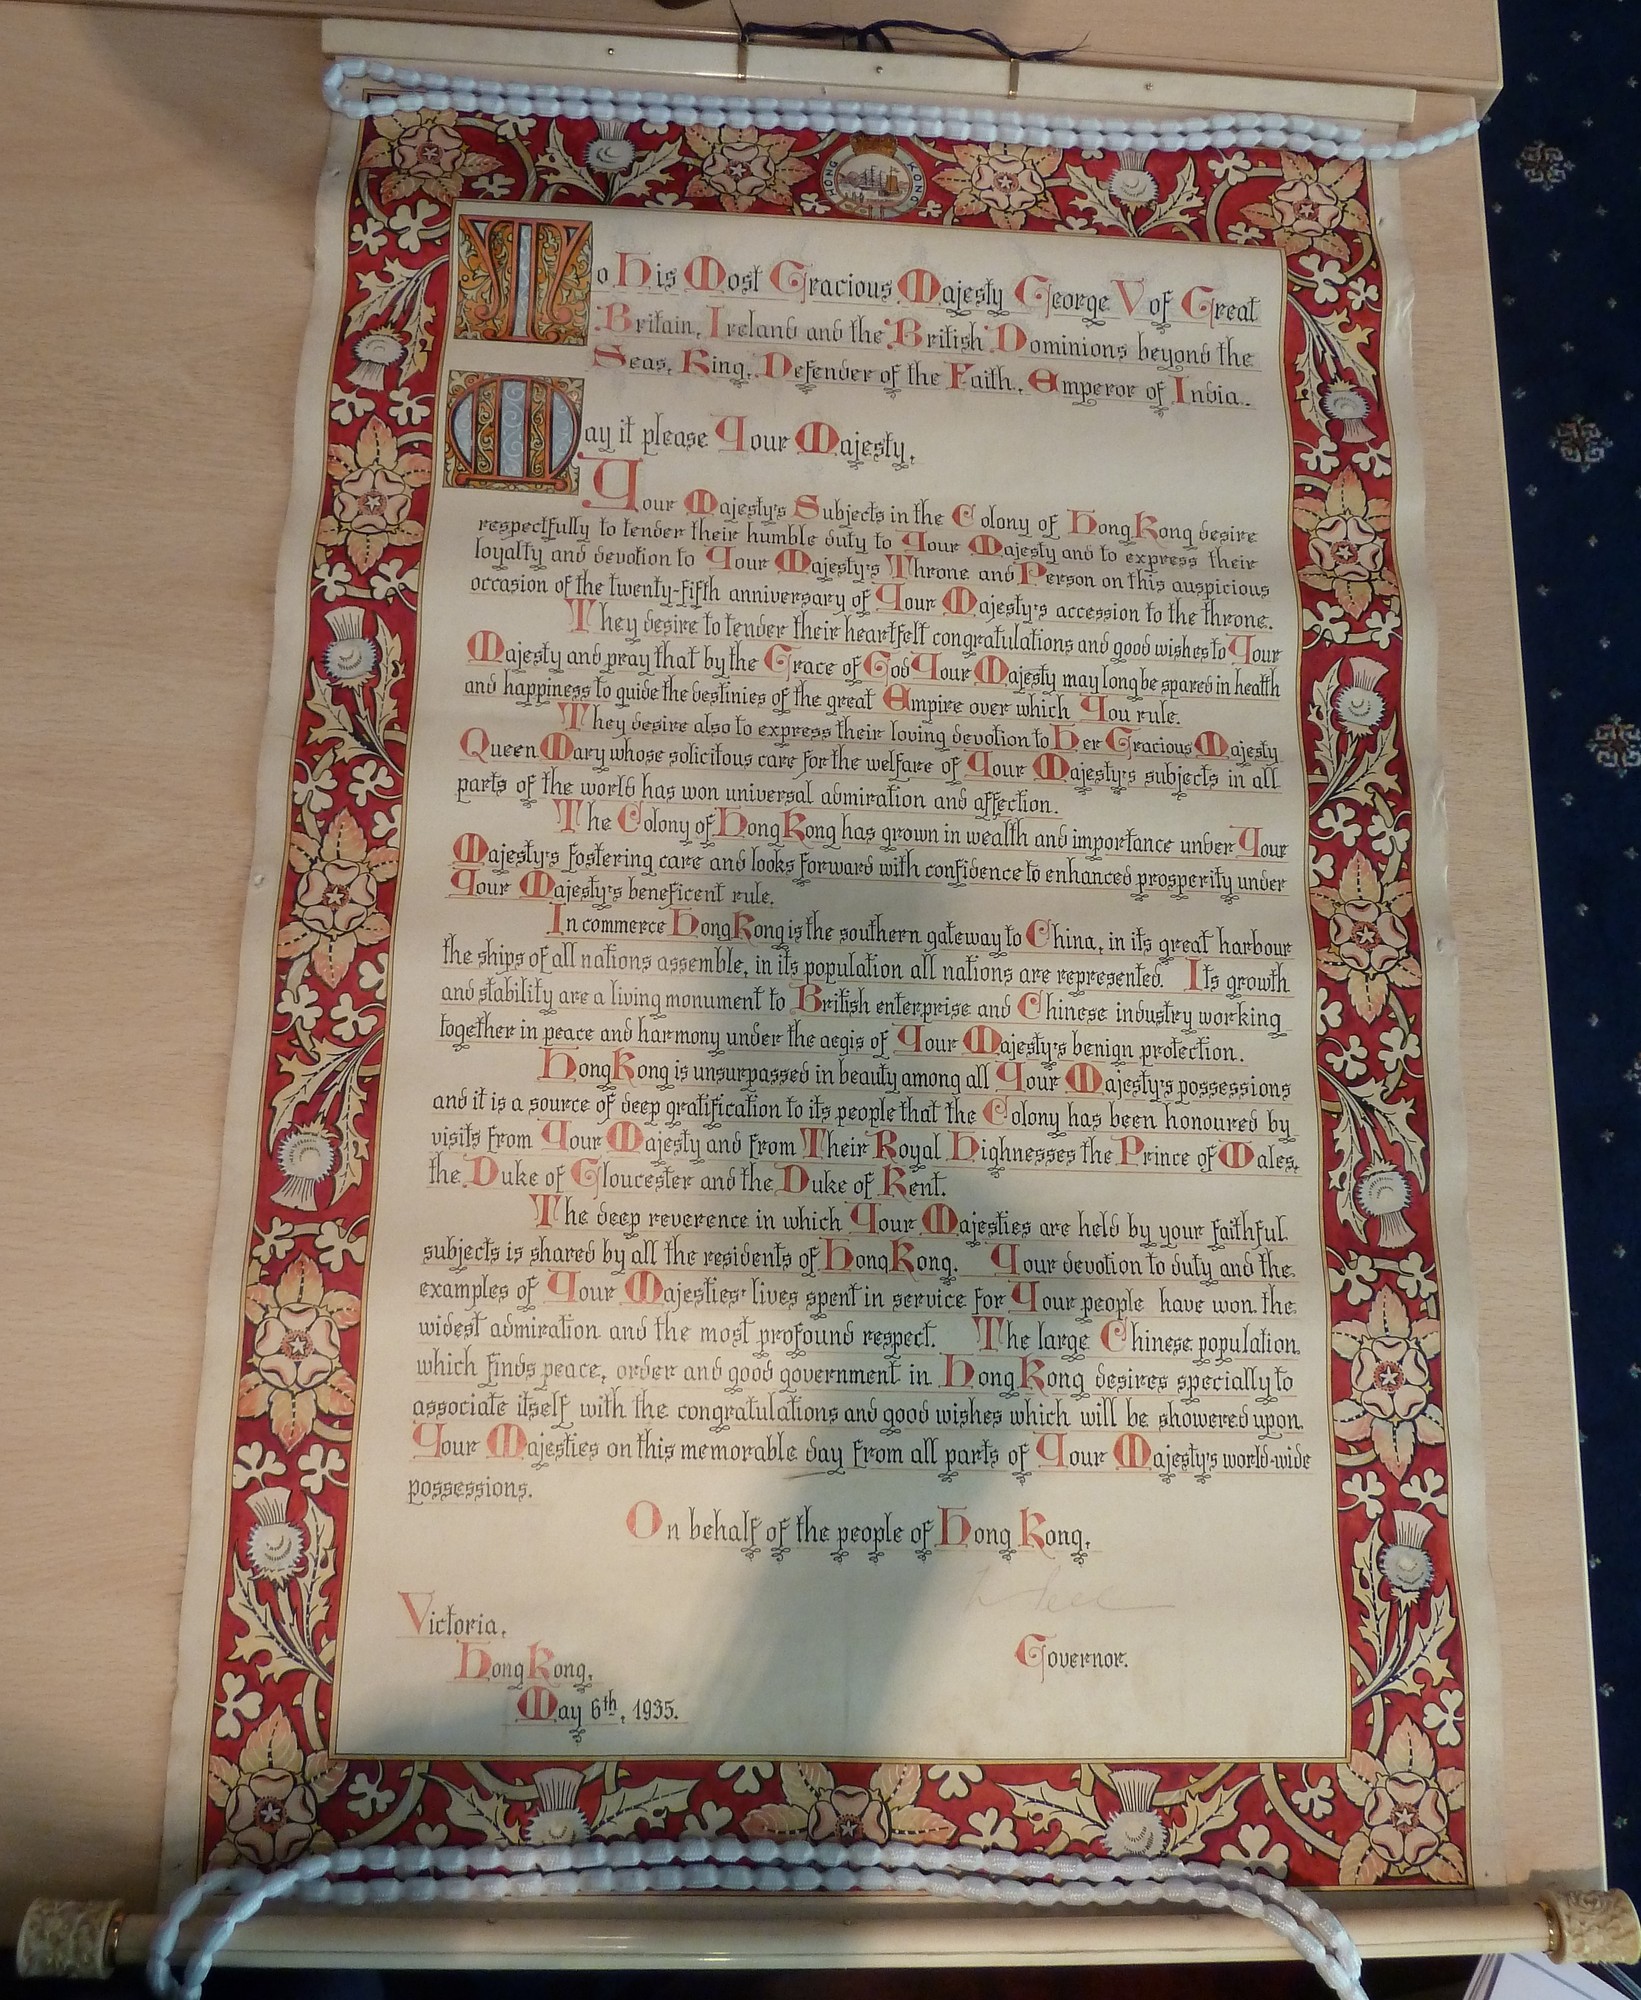 HONG KONG
To His Most Gracious Majesty George V of Great
Britain, Ireland and the British Dominions beyond the
Seas, King, Defender of the Faith, Emperor of India.
May it please Your Majesty,
Your Majesty's Subjects in the Colony of Hong Kong desire
respectfully to tender their humble duty to Your Majesty and to express their
loyalty and devotion to Your Majesty's Throne and Person on this auspicious
occasion of the twenty-fifth anniversary of Your Majesty's accession to the throne.
They desire to tender their heartfelt congratulations and good wishes to Your
Majesty and pray that by the Grace of God Your Majesty may long be spared in health
and happiness to guide the destinies of the great Empire over which You rule.
They desire also to express their loving devotion to Her Gracious Majesty
Queen Mary whose solicitous care for the welfare of Your Majesty's subjects in all
parts of the world has won universal admiration and affection.
The Colony of Hong Kong has grown in wealth and importance under Your
Majesty's fostering care and looks forward with confidence to enhanced prosperity under
Your Majesty's beneficent rule.
In commerce Hong Kong is the southern gateway to China, in its great harbour
the ships of all nations assemble, in its population all nations are represented. Its growth
and stability are a living monument to British enterprise and Chinese industry working
together in peace and harmony under the aegis of Your Majesty's benign protection.
Hong Kong is unsurpassed in beauty among all Your Majesty's possessions
and it is a source of deep gratification to its people that the Colony has been honoured by
visits from Your Majesty and from Their Royal Highnesses the Prince of Wales,
the Duke of Gloucester and the Duke of Kent.
The deep reverence in which Your Majesties are held by your faithful
subjects is shared by all the residents of Hong Kong. Your devotion to duty and the
examples of Your Majesties' lives spent in service for Your people have won the
widest admiration and the most profound respect. The large Chinese population
which finds peace, order and good government in Hong Kong desires specially to
associate itself with the congratulations and good wishes which will be showered upon
Your Majesties on this memorable day from all parts of Your Majesty's world-wide
possessions.
On behalf of the people of Hong Kong,
Governor.
Victoria,
Hong Kong,
May 6th, 1935.